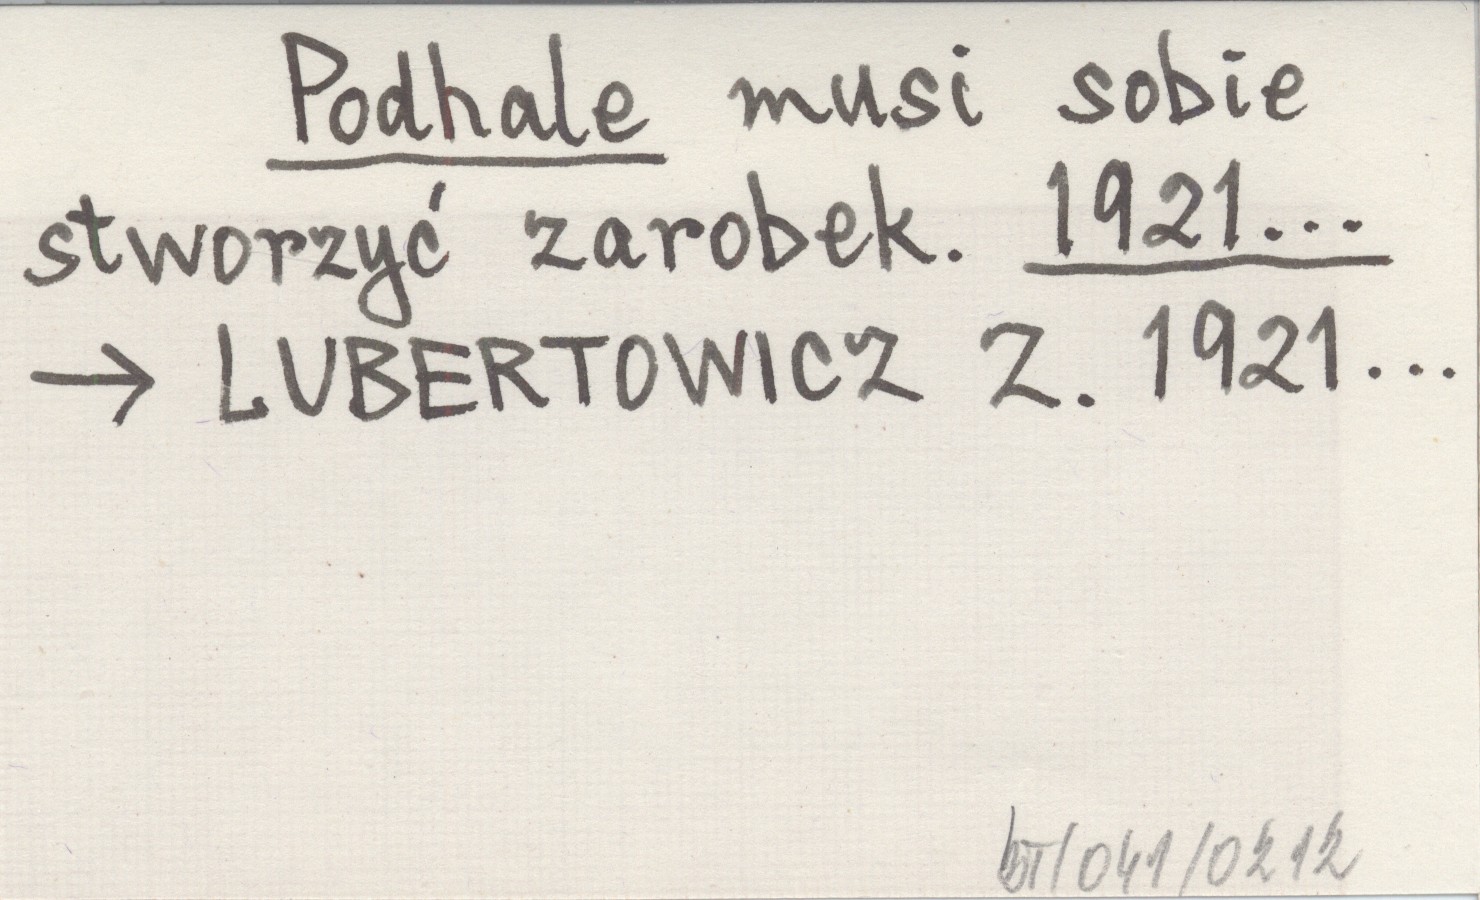 Podhale musi sobie
stworzyć zarobek. 1921...
→ LUBERTOWICZ Z. 1921...
bT/041/0212